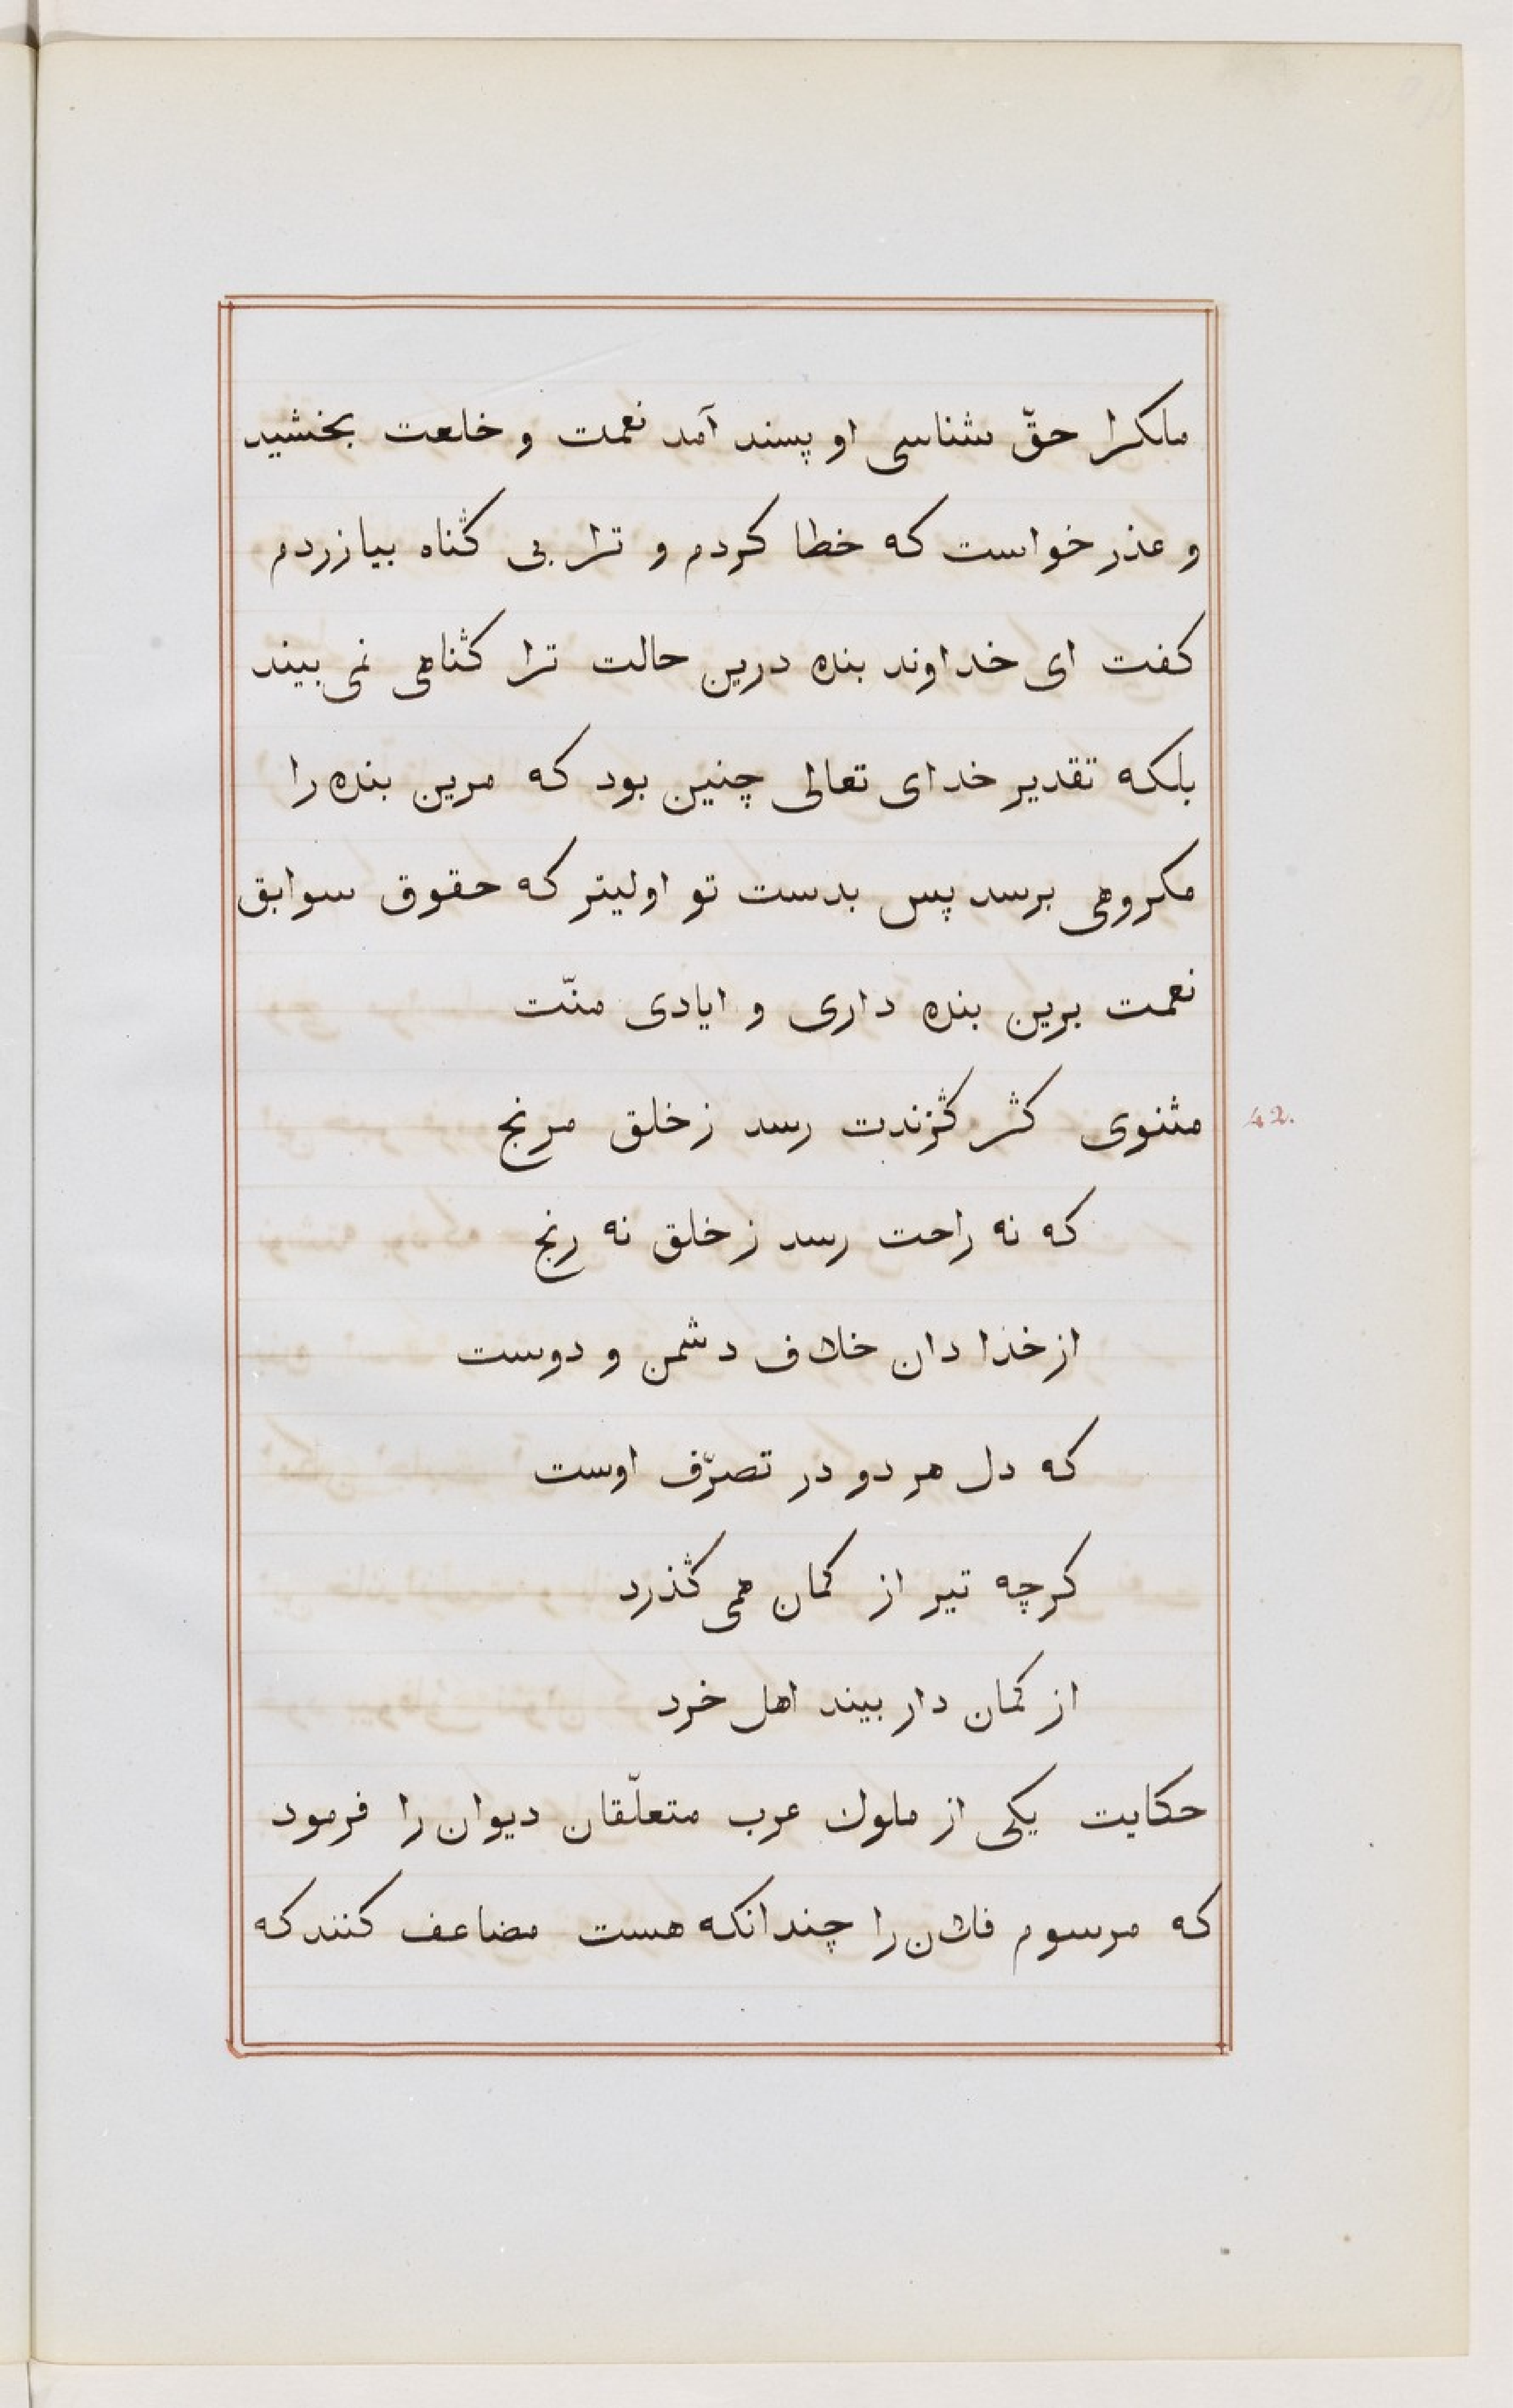 ملکرا حقّ شناسی او پسند آمد نعمت و خلعت بخشید
و عذر خواست که خطا کردم و ترا بی گناه بیازردم
کفت ای خداوند بنده درین حالت ترا گناهی نمی بیند
بلکه تقدیر خدای تعالی چنین بود که مرین بنده را
مکروهی برسد پس بدست تو اولیتر که حقوق سوابق
نعمت برین بنده داری و ایادی منّت
مثنوی گر گزندت رسد ز خلق مرنج
42.
که نه راحت رسد ز خلق نه رنج
از خذا دان خلاف دشمن و دوست
که دل هر دو در تصرّف اوست
کرچه تیر از کمان همی گذرد
از کمان دار بیند اهل خرد
حکایت یکی از ملوك عرب متعلّقان دیوان را فرمود
که مرسوم فلان را چندانکه هست مضاعف کنند که